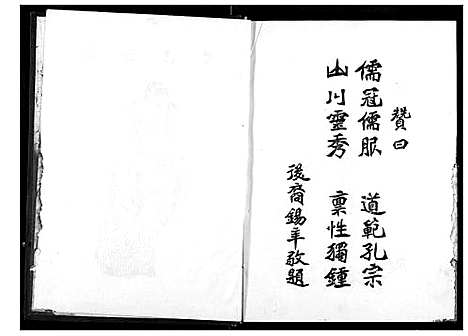 贊曰
儒冠儒服 道範孔宗
山川靈秀 稟性獨鍾
後裔錫年敬題